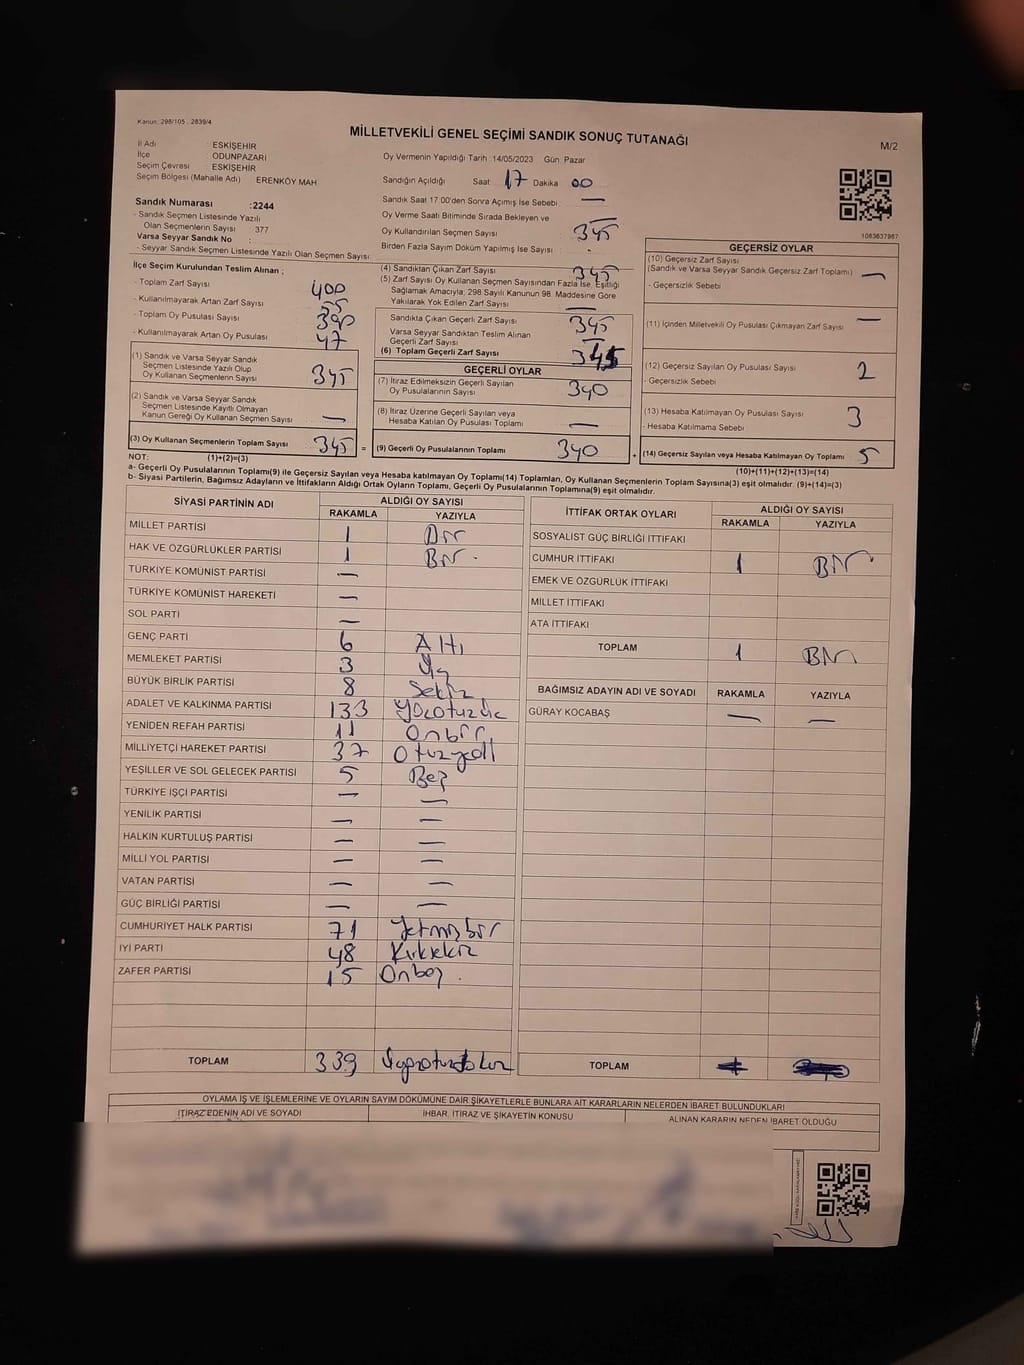 Kanun: 298/105 , 2839/4
MİLLETVEKİLİ GENEL SEÇİMİ SANDIK SONUÇ TUTANAĞI
M/2
İl Adı : ESKİŞEHİR
İlçe : ODUNPAZARI
Seçim Çevresi : ESKİŞEHİR
Seçim Bölgesi (Mahalle Adı) : ERENKÖY MAH
Oy Vermenin Yapıldığı Tarih :14/05/2023 Gün: Pazar
Sandığın Açıldığı Saat 17 Dakika 00
Sandık Saat 17:00'den Sonra Açılmış İse Sebebi : —
Sandık Numarası :2244
- Sandık Seçmen Listesinde Yazılı
Olan Seçmenlerin Sayısı : 377
Varsa Seyyar Sandık No :
- Seyyar Sandık Seçmen Listesinde Yazılı Olan Seçmen Sayısı:
Oy Verme Saati Bitiminde Sırada Bekleyen ve —
Oy Kullandırılan Seçmen Sayısı : 345
Birden Fazla Sayım Döküm Yapılmış İse Sayısı :
1083637987
İlçe Seçim Kurulundan Teslim Alınan ;
- Toplam Zarf Sayısı : 400
- Kullanılmayarak Artan Zarf Sayısı : 55
- Toplam Oy Pusulası Sayısı : 390
- Kullanılmayarak Artan Oy Pusulası : 47
(1) Sandık ve Varsa Seyyar Sandık
Seçmen Listesinde Yazılı Olup
Oy Kullanan Seçmenlerin Sayısı 345
(2) Sandık ve Varsa Seyyar Sandık
Seçmen Listesinde Kayıtlı Olmayan
Kanun Gereği Oy Kullanan Seçmen Sayısı —
(3) Oy Kullanan Seçmenlerin Toplam Sayısı 345 =
(4) Sandıktan Çıkan Zarf Sayısı 345
(5) Zarf Sayısı Oy Kullanan Seçmen Sayısından Fazla İse, Eşitliği
Sağlamak Amacıyla; 298 Sayılı Kanunun 98. Maddesine Göre
Yakılarak Yok Edilen Zarf Sayısı : —
Sandıkta Çıkan Geçerli Zarf Sayısı : 345
Varsa Seyyar Sandıktan Teslim Alınan
Geçerli Zarf Sayısı : —
(6) Toplam Geçerli Zarf Sayısı 345
GEÇERLİ OYLAR
(7) İtiraz Edilmeksizin Geçerli Sayılan
Oy Pusulalarının Sayısı : 340
(8) İtiraz Üzerine Geçerli Sayılan veya
Hesaba Katılan Oy Pusulası Toplamı : —
(9) Geçerli Oy Pusulalarının Toplamı : 340 +
GEÇERSİZ OYLAR
(10) Geçersiz Zarf Sayısı
(Sandık ve Varsa Seyyar Sandık Geçersiz Zarf Toplamı) —
- Geçersizlik Sebebi :
(11) İçinden Milletvekili Oy Pusulası Çıkmayan Zarf Sayısı : —
(12) Geçersiz Sayılan Oy Pusulası Sayısı : 2
- Geçersizlik Sebebi :
(13) Hesaba Katılmayan Oy Pusulası Sayısı : 3
- Hesaba Katılmama Sebebi :
(14) Geçersiz Sayılan veya Hesaba Katılmayan Oy Toplamı : 5
NOT: (1)+(2)=(3)
(10)+(11)+(12)+(13)=(14)
a- Geçerli Oy Pusulalarının Toplamı(9) ile Geçersiz Sayılan veya Hesaba katılmayan Oy Toplamı(14) Toplamları, Oy Kullanan Seçmenlerin Toplam Sayısına(3) eşit olmalıdır. (9)+(14)=(3)
b- Siyasi Partilerin, Bağımsız Adayların ve İttifakların Aldığı Ortak Oyların Toplamı, Geçerli Oy Pusulalarının Toplamına(9) eşit olmalıdır.
SİYASİ PARTİNİN ADI ALDIĞI OY SAYISI
RAKAMLA YAZIYLA
MİLLET PARTİSİ 1 Bir
HAK VE ÖZGÜRLÜKLER PARTİSİ 1 Bir
TÜRKİYE KOMÜNİST PARTİSİ —
TÜRKİYE KOMÜNİST HAREKETİ —
SOL PARTİ —
GENÇ PARTİ 6 Altı
MEMLEKET PARTİSİ 3 Üç
BÜYÜK BİRLİK PARTİSİ 8 Sekiz
ADALET VE KALKINMA PARTİSİ 133 Yüzotuzüç
YENİDEN REFAH PARTİSİ 11 Onbir
MİLLİYETÇİ HAREKET PARTİSİ 37 Otuzyedi
YEŞİLLER VE SOL GELECEK PARTİSİ 5 Beş
TÜRKİYE İŞÇİ PARTİSİ — —
YENİLİK PARTİSİ — —
HALKIN KURTULUŞ PARTİSİ — —
MİLLİ YOL PARTİSİ — —
VATAN PARTİSİ — —
GÜÇ BİRLİĞİ PARTİSİ — —
CUMHURİYET HALK PARTİSİ 71 Yetmişbir
İYİ PARTİ 48 Kırksekiz
ZAFER PARTİSİ 15 Onbeş
TOPLAM 339 Üçyüzotuzdokuz
İTTİFAK ORTAK OYLARI ALDIĞI OY SAYISI
RAKAMLA YAZIYLA
SOSYALİST GÜÇ BİRLİĞİ İTTİFAKI
CUMHUR İTTİFAKI 1 Bir
EMEK VE ÖZGÜRLÜK İTTİFAKI
MİLLET İTTİFAKI
ATA İTTİFAKI
TOPLAM 1 Bir
BAĞIMSIZ ADAYIN ADI VE SOYADI RAKAMLA YAZIYLA
GÜRAY KOCABAŞ — —
TOPLAM
OYLAMA İŞ VE İŞLEMLERİNE VE OYLARIN SAYIM DÖKÜMÜNE DAİR ŞİKAYETLERLE BUNLARA AİT KARARLARIN NELERDEN İBARET BULUNDUKLARI
İTİRAZ EDENİN ADI VE SOYADI İHBAR, İTİRAZ VE ŞİKAYETİN KONUSU ALINAN KARARIN NEDEN İBARET OLDUĞU